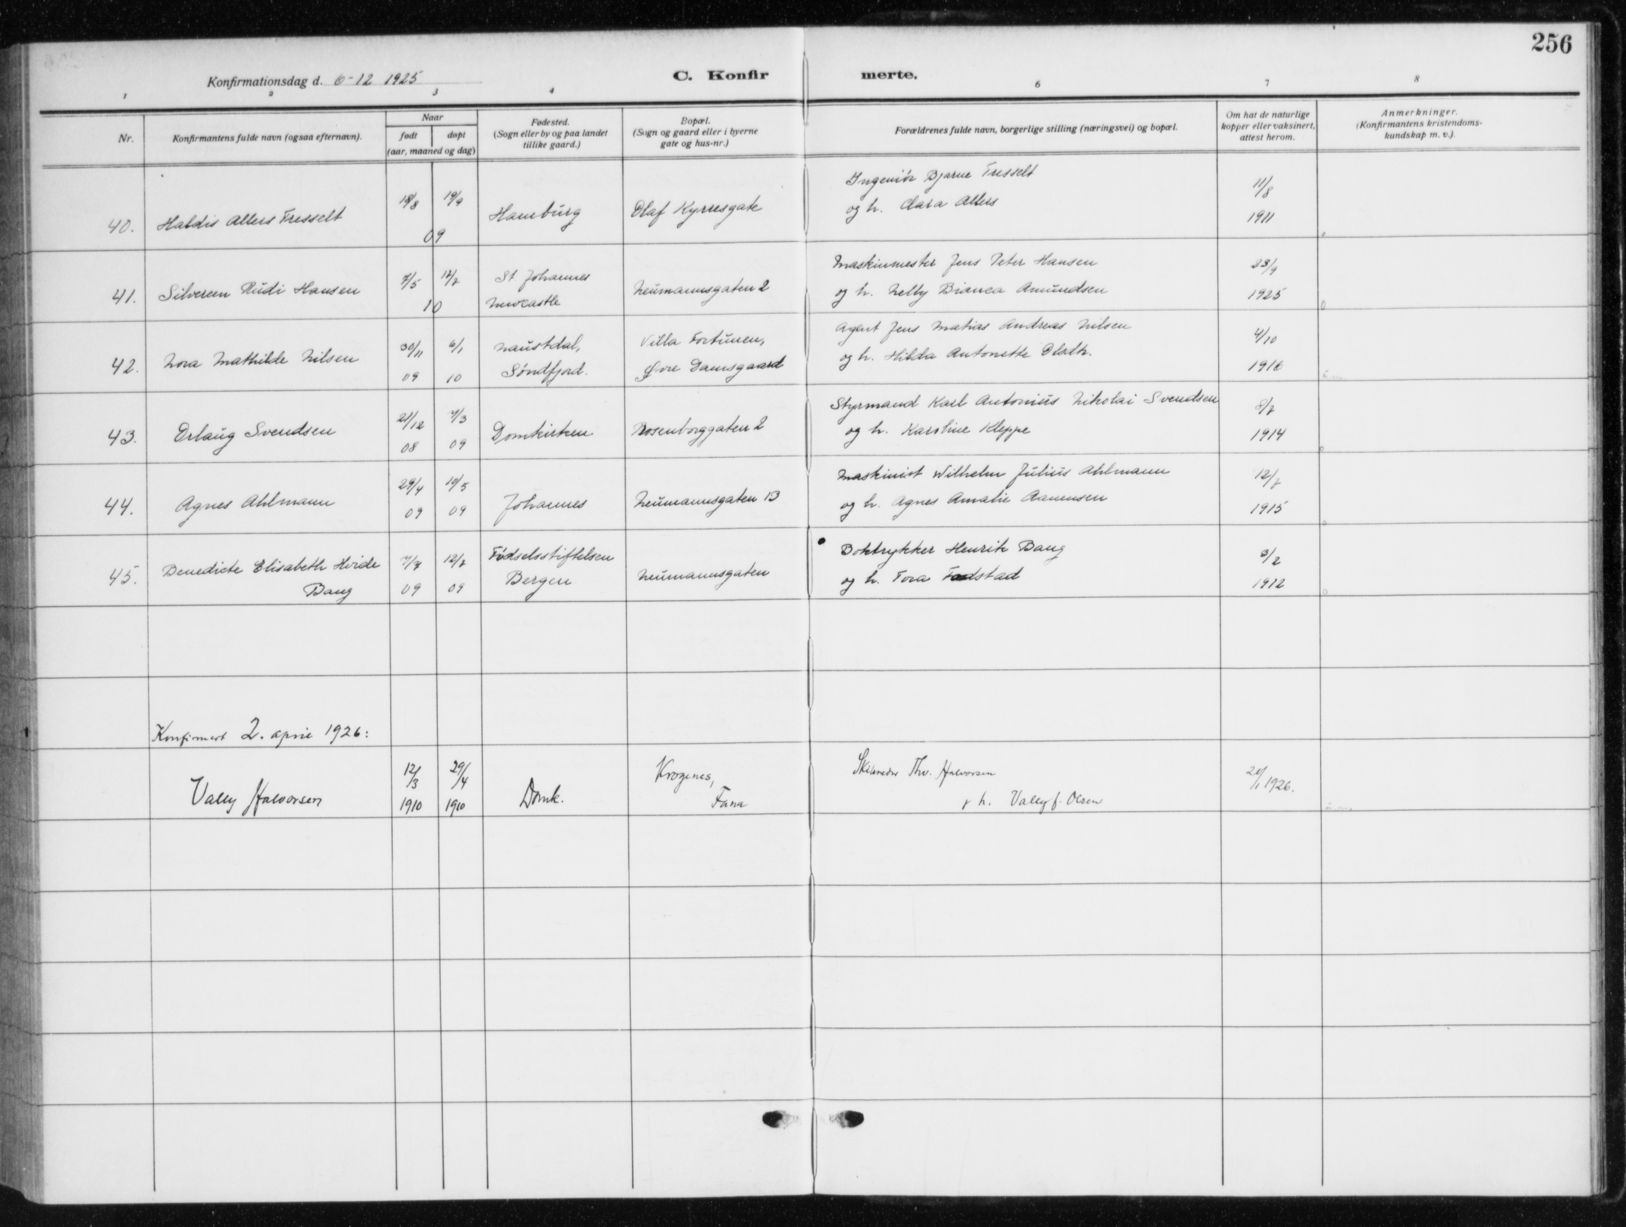 256
Konfirmationsdag d. 6-12 1925
C. Konfirmerte.
1 2 3 4 6 7 8
Nr.
Konfirmantens fulde navn (ogsaa efternavn).
Naar
født døpt
(aar, maaned og dag)
Fødested.
(Sogn eller by og paa landet
tillike gaard.)
Bopæl.
(Sogn og gaard eller i byerne
gate og hus-nr.)
Forældrenes fulde navn, borgerlige stilling (næringsvei) og bopæl.
Om hat de naturlige
kopper eller vaksinert,
attest herom.
Anmerkninger.
(Konfirmantens kristendoms-
kundskap m. v.).
40. Haldis Allers Fresselt 18/8 19/9 09 Hamburg Olaf Kyrresgate
Ingeniør Bjarne Fresselt
og h. Clara Allers
11/8
1911
41. Silvereen Rudi Hansen 7/5 12/7 10
St Johannes
Newcastle
Neumannsgaten 2
Maskinmester Jens Peter Hansen
og h. Nelly Bianca Amundsen
23/9
1925
42. Nora Mathilde Nilsen
30/11 6/1
09 10
Naustdal,
Søndfjord.
Villa Fortunen,
Øvre Damsgaard
Agent Jens Matias Andreas Nilsen
og h. Hilda Antonette
4/10
1916
43. Erlaug Svendsen
21/12 7/3
08 09
Domkirken
Rosenborggaten 2
Styrmand Karl Antonius Nikolai Svendsen
og h. Karoline Kleppe
8/7
1914
44. Agnes Ahlmann
29/4 19/5
09 09
Johannes
Neumannsgaten 13
Maskinist Wilhelm Julius Ahlmann
og h. Agnes Amalie Aanensen
12/7
1915
45. Benedicte Elisabeth Hvide
Bang
12/7
09 09
Fødselsstiftelsen
Bergen
Neumannsgaten
Boktrykker Henrik Bang
og h. Tora Fodstad
3/2
1912
Konfirmert 2. april 1926:
Vally Halvorsen
12/3 29/4
1910 1910
Domk.
Krogenes,
Fana
Thv. Halvorsen
h. Vally f. Olsen
1926.